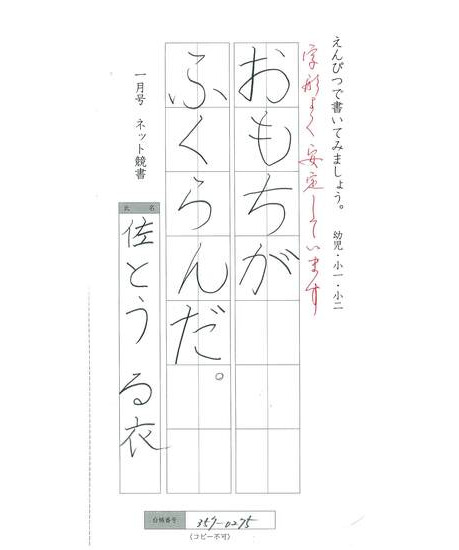 えんぴつで書いてみましょう。 幼児・小一・小二
字形よく安定しています
おもちが
ふくらんだ。
一月号 ネット競書
氏名
佐とう る衣
台帳番号 357-0275
(コピー不可)